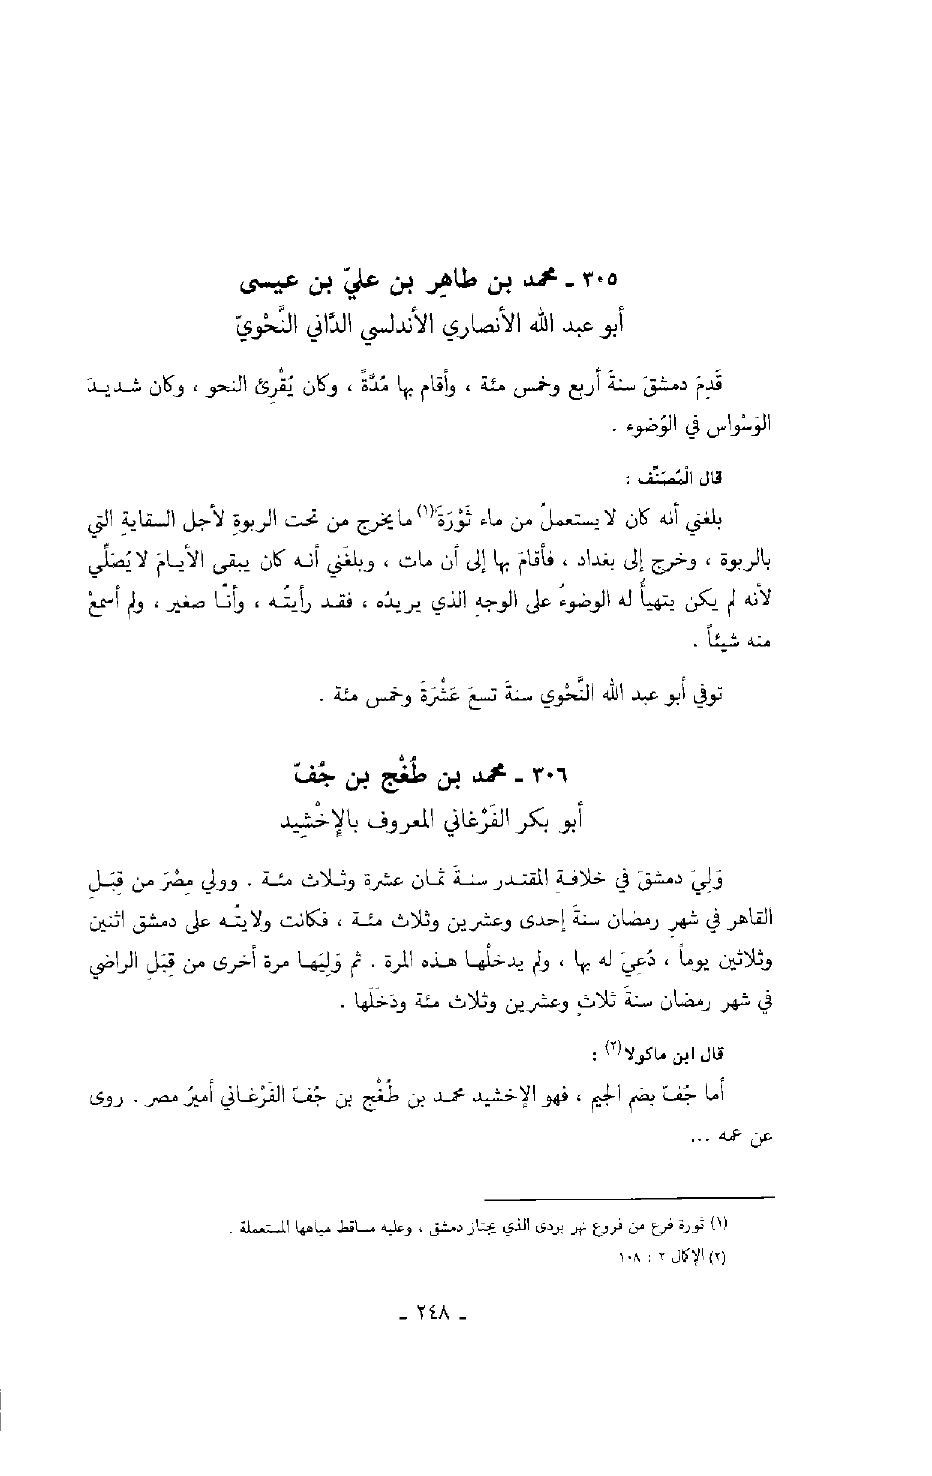 ٣٠٥ ـ محمد بن طاهِر بن عليّ بن عيسى
أبو عبد الله الأنصاري الأندلسي الدَّاني النَّحْويّ
قَدِمَ دمشقَ سنةَ أربع وخمس مئة ، وأقام بها مُدَّةً ، وكان يُقْرِئ النحو ، وكان شديدَ
الوَسْواس في الوُضوء .
قال المُصَنِّف :
بلغني أنه كان لا يستعملُ من ماء ثَوْرَةَ(١) ما يخرج من تحت الربوةِ لأجل السقايةِ التي
بالربوة ، وخرج إلى بغداد ، فأقامَ بها إلى أن مات ، وبلغَني أنه كان يبقى الأيامَ لا يُصَلِّي
لأنه لم يكن يتهيأُ له الوضوءُ على الوجهِ الذي يريدُه ، فقد رأيتُه ، وأنا صغير ، ولم أسمعْ
منه شيئاً .
توفي أبو عبد الله النَّحْوي سنةَ تسعَ عَشْرَةَ وخمس مئة .
٣٠٦ ـ محمد بن طُغْج بن جُفّ
أبو بكر الفَرْغاني المعروف بالإخْشِيد
وَلِيَ دمشقَ في خلافةِ المقتدر سنةَ ثمان عشرة وثلاث مئة . وولي مِصْرَ من قِبَلِ
القاهر في شهرِ رمضان سنةَ إحدى وعشرين وثلاث مئة ، فكانت ولايتُه على دمشق اثنين
وثلاثين يوماً ، دُعيَ له بها ، ولم يدخلْها هذه المرة . ثم وَلِيَها مرة أخرى من قِبَلِ الراضي
في شهر رمضان سنةَ ثلاثٍ وعشرين وثلاث مئة ودَخَلَها .
قال ابن ماكولا(٢) :
أما جُفّ بضم الجيم ، فهو الإخشيد محمد بن طُغْج بن جُفّ الفَرْغاني أميرُ مصر . روى
عن عمه ...
(١) ثورة فرع من فروع نهر بردى الذي يجتاز دمشق ، وعليه مساقط مياهها المستعملة .
(٢) الإكمال ٢ : ١٠٨
ـ ٢٤٨ ـ